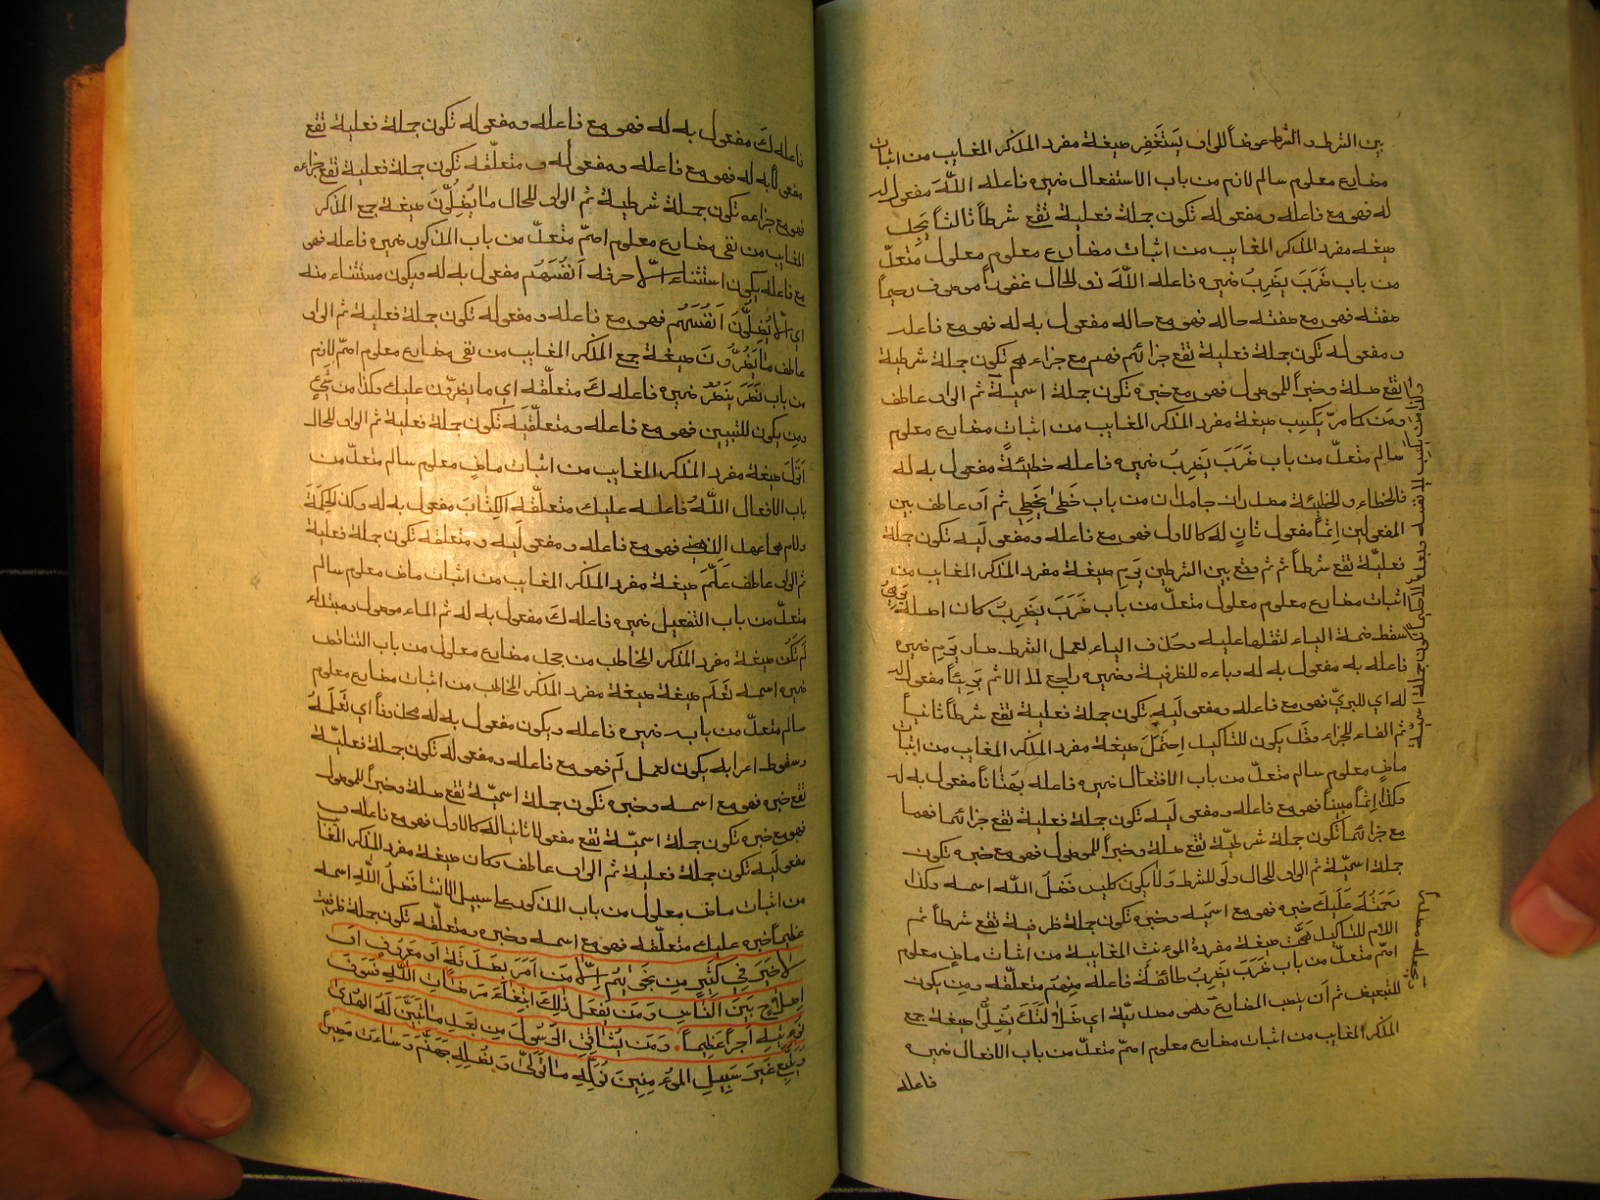 بين الشرط و الشرط عوضاً للواو يَستَغفِر صيغة مفرد المذكر المغايب من اثبات
مضارع معلوم سالم لازم من باب الاستفعال ضميره فاعله اللّهَ مفعول له
له فهو مع فاعله ومفعوله تكون جملة فعلية تقع شرطاً ثالثاً يَجِدِ
صيغة مفرد المذكر المغايب من اثبات مضارع معلوم معلول متعدّ
من باب ضَرَبَ يَضرِبُ ضميره فاعله اللّهَ ذو الحال غفوراً موصوف رحيماً
صفته فهو مع صفته حاله فهو مع حاله مفعول به له فهو مع فاعله
ومفعوله تكون جملة فعلية تقع جزائهم فهم مع جزاءهم تكون جملة شرطية
تقع صلة وخبراً للموصول فهو مع خبره تكون جملة اسمية ثم الواو عاطف
ومَن كما مرّ يَكسِب صيغة مفرد المذكر المغايب من اثبات مضارع معلوم
سالم متعدّ من باب ضَرَبَ يَضرِبُ ضميره فاعله خطيئةً مفعول به له
فالخطاء والخطيئة مصدران جامدان من باب خَطِئَ يَخطِئُ ثم اَو عاطف بين
المفعولين اِثماً مفعول ثانٍ له كالاول فهو مع فاعله ومفعولَيه تكون جملة
فعليّة تقع شرطاً ثم ثم وقع بين الشرطين يَرمِ صيغة مفرد المذكر المغايب من
اثبات مضارع معلوم معلول متعدّ من باب ضَرَبَ يَضرِبُ كان اصله يَرمِيُ
سقط ضمة الياء لثقلها عليه وحذف الياء لعمل الشرط صار يَرمِ ضميره
فاعله به مفعول به له وباءه للظرفية وضميره راجع لما الاثم بَرِيئاً مفعول له
له اي للبريّ فهو مع فاعله ومفعولَيه تكون جملة فعلية تقع شرطاً ثانياً
ثم الفاء للجزاء وقد يكون للتاكيد اِحتَمَلَ صيغة مفرد المذكر المغايب من اثبات
ماضٍ معلوم سالم متعدّ من باب الافتعال ضميره فاعله بهتاناً مفعول به له
وكذا اِثماً مبيناً فهو مع فاعله ومفعولَيه تكون جملة فعلية تقع جزائهما فهما
مع جزائهما تكون جملة شرطيّة تقع صلة وخبراً للموصول فهو مع خبره تكون
جملة اسميّة ثم الواو للحال ولَو للشرط ولا يكون كليس فضلَ اللّه اسمه وكذا
رَحمَتُهُ عَلَيكَ خبره فهو مع اسمَيه وخبره تكون جملة ظرفية تقع شرطاً ثم
اللام للتاكيد هَمَّت صيغة مفردة المؤنث المغايبة من اثبات ماضٍ معلوم
اصمّ متعدّ من باب ضَرَبَ يَضرِبُ طائفةٌ فاعله مِنهُم متعلّقه ومِن يكون
للتبعيض ثم اَن ينصب المضارع وهي مصدريّة اي يُضِلُّوكَ صيغة جمع
المذكر المغايب من اثبات مضارع معلوم اصمّ متعدّ من باب الافعال ضميره
فاعله
فاعله كَ مفعول به له فهو مع فاعله ومفعوله تكون جملة فعلية تقع
مفعولا به له فهو مع فاعله ومفعوله ومتعلّقه تكون جملة فعلية تقع جزاءه
فهو مع جزاءه تكون جملة شرطية ثم الواو للحال ما يُضِلُّونَ صيغة جمع المذكر
المغايب من نفي مضارع معلوم اصمّ متعدّ من باب المذكور ضميره فاعله فهو
مع فاعله يكون استثناء اِلّا حرفه اَنفُسَهُم مفعول به له ويكون مستثناء منه
اي اِلّا يُضِلُّونَ اَنفُسَهُم فهو مع فاعله ومفعوله تكون جملة فعلية ثم الواو
عاطف ما يَضُرُّونَ صيغة جمع المذكر المغايب من نفي مضارع معلوم اصمّ لازم
من باب نَصَرَ يَنصُرُ ضميره فاعله كَ متعلّقه اي ما يضرّون عليك وكذا مِن شَيءٍ
ومِن يكون للتبيين فهو مع فاعله ومتعلّقَيه تكون جملة فعلية ثم الواو للحال
اَنزَلَ صيغة مفرد المذكر المغايب من اثبات ماضٍ معلوم سالم متعدّ من
باب الافعال اللّهُ فاعله عليك متعلّقه الكِتابَ مفعول به له وكذا الحِكمَةَ
ولام فهو مع فاعله ومفعولَيه ومتعلّقه تكون جملة فعلية
ثم الواو عاطف عَلَّمَ صيغة مفرد المذكر المغايب من اثبات ماضٍ معلوم سالم
متعدّ من باب التفعيل ضميره فاعله كَ مفعول به له ثم الماء موصول ومبتداء
لَم تَكُن صيغة مفرد المذكر المخاطب من جحد مضارع معلول من باب الناقص
ضميره اسمه تَعلَم صيغة مفرد المذكر المخاطب من اثبات مضارع معلوم
سالم متعدّ من باب ضميره فاعله ويكون مفعول به له محذوفاً اي تَعلَمُهُ
وسقوط اعرابه يكون لعمل لَم فهو مع فاعله ومفعوله تكون جملة فعليّة
تقع خبره فهو مع اسمه وخبره تكون جملة اسميّة تقع صلة وخبراً للموصول
فهو مع خبره تكون جملة اسميّة تقع مفعولا ثانياً له كالاول فهو مع فاعله و
مفعولَيه تكون جملة فعلية ثم الواو عاطف وكان صيغة مفرد المذكر المغا
من اثبات ماضٍ معلول من باب المذكور على سبيل الانشا فضلُ اللّهِ اسمه
عظيماً خبره عليك متعلّقه فهو مع اسمه وخبره ومتعلّقه تكون جملة ظرفية
لا خَيرَ في كَثيرٍ مِن نَجواهُم اِلّا مَن اَمَرَ بِصَدَقَةٍ اَو مَعرُوفٍ اَو
اِصلاحٍ بَينَ النّاسِ وَمَن يَفعَل ذلِكَ ابتِغاءَ مَرضاتِ اللّهِ فَسَوفَ
نُؤتيهِ اَجراً عَظيماً . وَمَن يُشاقِقِ الرَّسُولَ مِن بَعدِ ما تَبَيَّنَ لَهُ الهُدى
وَيَتَّبِع غَيرَ سَبيلِ المُؤمِنينَ نُوَلِّهِ ما تَوَلّى وَنُصلِهِ جَهَنَّمَ وَساءَت مَصيراً